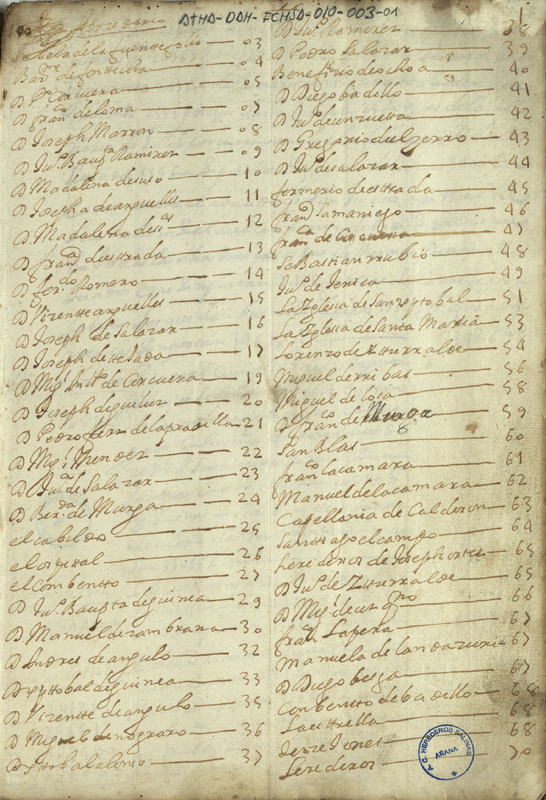 ATHA-DDH-FCHSA-010-003-01
1
Abezedario
Isabela de la fuente folio — 03
Bar.me de fontecha — 04
D P.o Corcuera — 05
D fran.co de loma — 07
D Joseph Marron — 08
D Ju.o Baup.ta Ramirez — 09
D Madalena de suso — 10
D Josepha de arguelles — 11
D Madalena de — 12
D fran.co de estrada — 13
D fer.do Romero — 14
D Vizente arguelles — 15
D Joseph de Salazar — 16
D Joseph de tejada — 17
D Mig.l de Corcuera — 19
D Joseph de gueluz — 20
D Pedro ferrn de la pradilla — 21
D Mig.l Mendez — 22
D Ju.o de Salazar — 23
D Ber.do de Murga — 24
el cabildo — 25
el ospital — 26
el Combento — 27
D Ju.o Baupta de guinea — 29
D Manuel de zambrana — 30
D Andres de angulo — 32
D xptobal de guinea — 33
D Vizente de angulo — 35
D Miguel de nograro — 36
D xptobal alonso — 37
D Ju.o Ramirez — 38
D Pedro Salazar — 39
Benefizio de ochoa — 40
D Diego badillo — 41
D Ju.o de unzuetta — 42
D Gregorio del zerro — 43
D Ju.o de salazar — 44
formerio de estrada — 45
fran.co Samaniego — 46
fran.co de Corcuera — 47
Sebastian rrubio — 48
Ju.o de Jenica — 49
La Yglesia de San xptobal — 51
La Yglesia de Santa Maria — 53
Lorenzo de Yturralde — 54
Miguel de rribas — 56
Miguel de losa — 58
D fran.co de Murga — 59
San Blas — 60
fran.co la camara — 61
Manuel de la camara — 62
Capellania de Calderon — 63
Santiago el campo — 64
herederos de Joseph ortiz — 65
D Ju.o de Yturralde — 65
D Mig.l de — 66
fran.co Lapera — 67
Manuela de landazuri — 67
D Diego bega — 67
Conbento de badillo — 68
La estrella — 68
— 68
herederos — 70
G. HEREDEROS SALINAS
ARANA